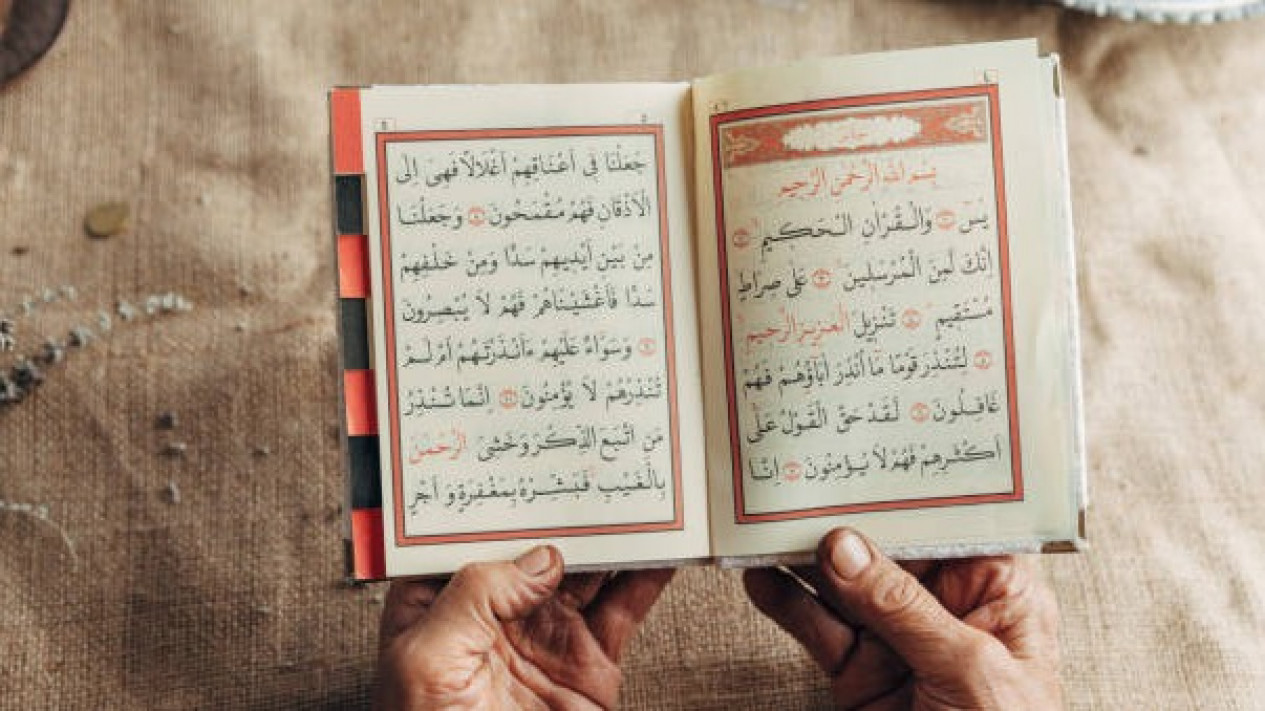 بِسْمِ اللّٰهِ الرَّحْمٰنِ الرَّحِيمِ
يٰسٓ ﴿١﴾ وَالْقُرْاٰنِ الْحَكِيمِ ﴿٢﴾
اِنَّكَ لَمِنَ الْمُرْسَلِينَ ﴿٣﴾ عَلٰى صِرَاطٍ
مُسْتَقِيمٍ ﴿٤﴾ تَنْزِيلَ الْعَزِيزِ الرَّحِيمِ
﴿٥﴾ لِتُنْذِرَ قَوْمًا مَا اُنْذِرَ اٰبَاؤُهُمْ فَهُمْ
غَافِلُونَ ﴿٦﴾ لَقَدْ حَقَّ الْقَوْلُ عَلٰى
اَكْثَرِهِمْ فَهُمْ لَا يُؤْمِنُونَ ﴿٧﴾ اِنَّا
جَعَلْنَا فِى اَعْنَاقِهِمْ اَغْلَالًا فَهِىَ اِلَى
الْاَذْقَانِ فَهُمْ مُقْمَحُونَ ﴿٨﴾ وَجَعَلْنَا
مِنْ بَيْنِ اَيْدِيهِمْ سَدًّا وَمِنْ خَلْفِهِمْ
سَدًّا فَاَغْشَيْنَاهُمْ فَهُمْ لَا يُبْصِرُونَ
﴿٩﴾ وَسَوَاءٌ عَلَيْهِمْ ءَاَنْذَرْتَهُمْ اَمْ لَمْ
تُنْذِرْهُمْ لَا يُؤْمِنُونَ ﴿١٠﴾ اِنَّمَا تُنْذِرُ
مَنِ اتَّبَعَ الذِّكْرَ وَخَشِىَ الرَّحْمٰنَ
بِالْغَيْبِ فَبَشِّرْهُ بِمَغْفِرَةٍ وَ اَجْرٍ